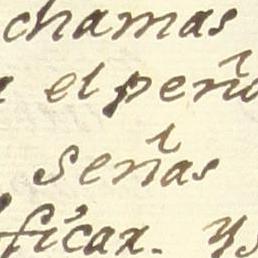 chamas
el peño
señas
ficar. ys